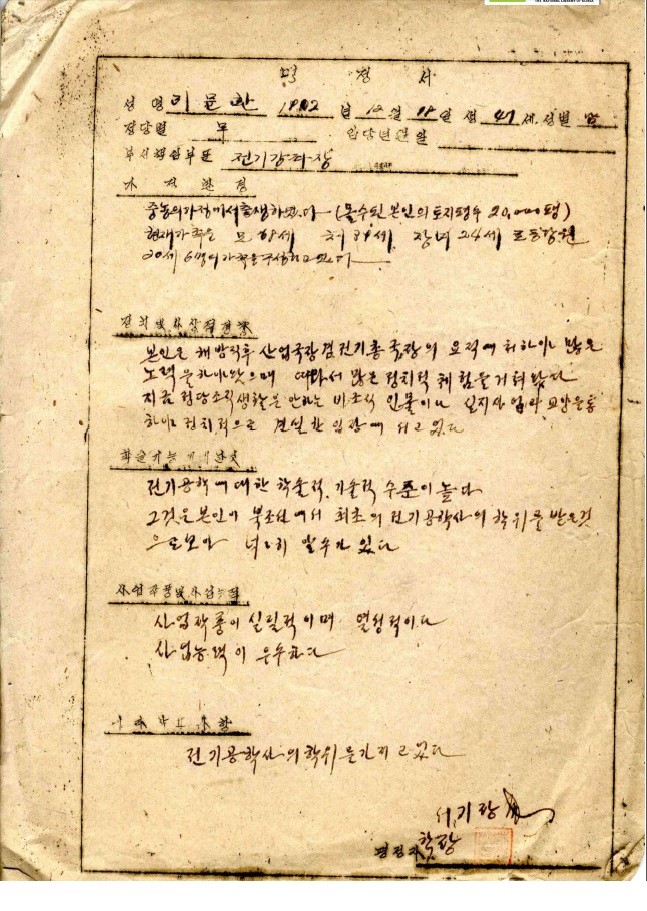 THE NATIONAL LIBRARY OF KOREA
평 정 서
성 명 리 문 환 1902 년 12 월 18 일 생 47 세. 성별 남
정당별 무 입당년월일
부서책임부표 전기강좌장
가 정 환 경
중농의 가정에서 출생하였다 (몰수된 본인의 토지평수 20,000평)
현재가족은 모 68세 처 39세 장녀 24세
6명의 가족을 구성하고 있다
정치 및 사상
본인은 해방직후 산업국장겸전기총국장의 요직에 처하여 많은
노력을 하여왔으며 따라서 많은 정치적 체험을 겪어 왔다
지금 정당조직생활은 안하는 인물이나 실지사업과 교양을 통
하여 정치적으로 견실한 입장에 서고 있다
학술기능
전기공학에 대한 학술적, 기술적 수준이 높다
그것은 본인이 북조선에서 최초의 전기공학사의 학위를 받은것
으로보아 넉넉히 알수가 있다
사업작풍 및 사업능력
사업작풍이 실질적이며 열성적이다
사업능력이 우수하다
전기공학사의 학위를 가지고 있다
서기장
평정자 학장